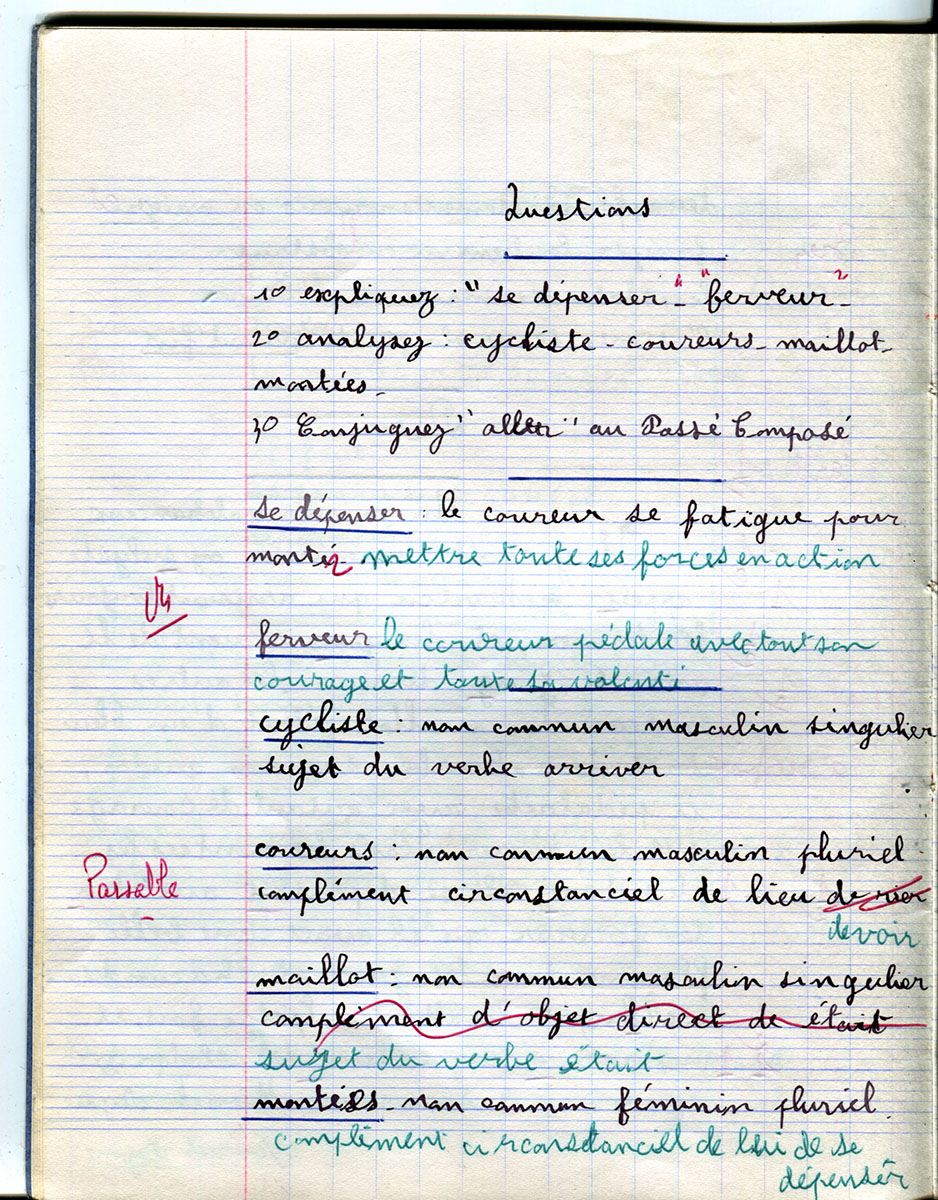 Questions
1° expliquez : "se dépenser" - "ferveur" -
2° analysez : cycliste - coureurs - maillot -
montées -
3° Conjuguez "aller" au Passé Composé
se dépenser : le coureur se fatigue pour
monter mettre toute ses forces en action
ferveur le coureur pédale avec tout son
courage et toute sa volonti
cycliste : non commun masculin singulier
sujet du verbe arriver
coureurs : non commun masculin pluriel
Passable
complément circonstanciel de lieu de
de voir
maillot : non commun masculin singulier
complément d'objet direct de était
sujet du verbe était
montées - non commun féminin pluriel
complément circonstanciel de de se
dépensér